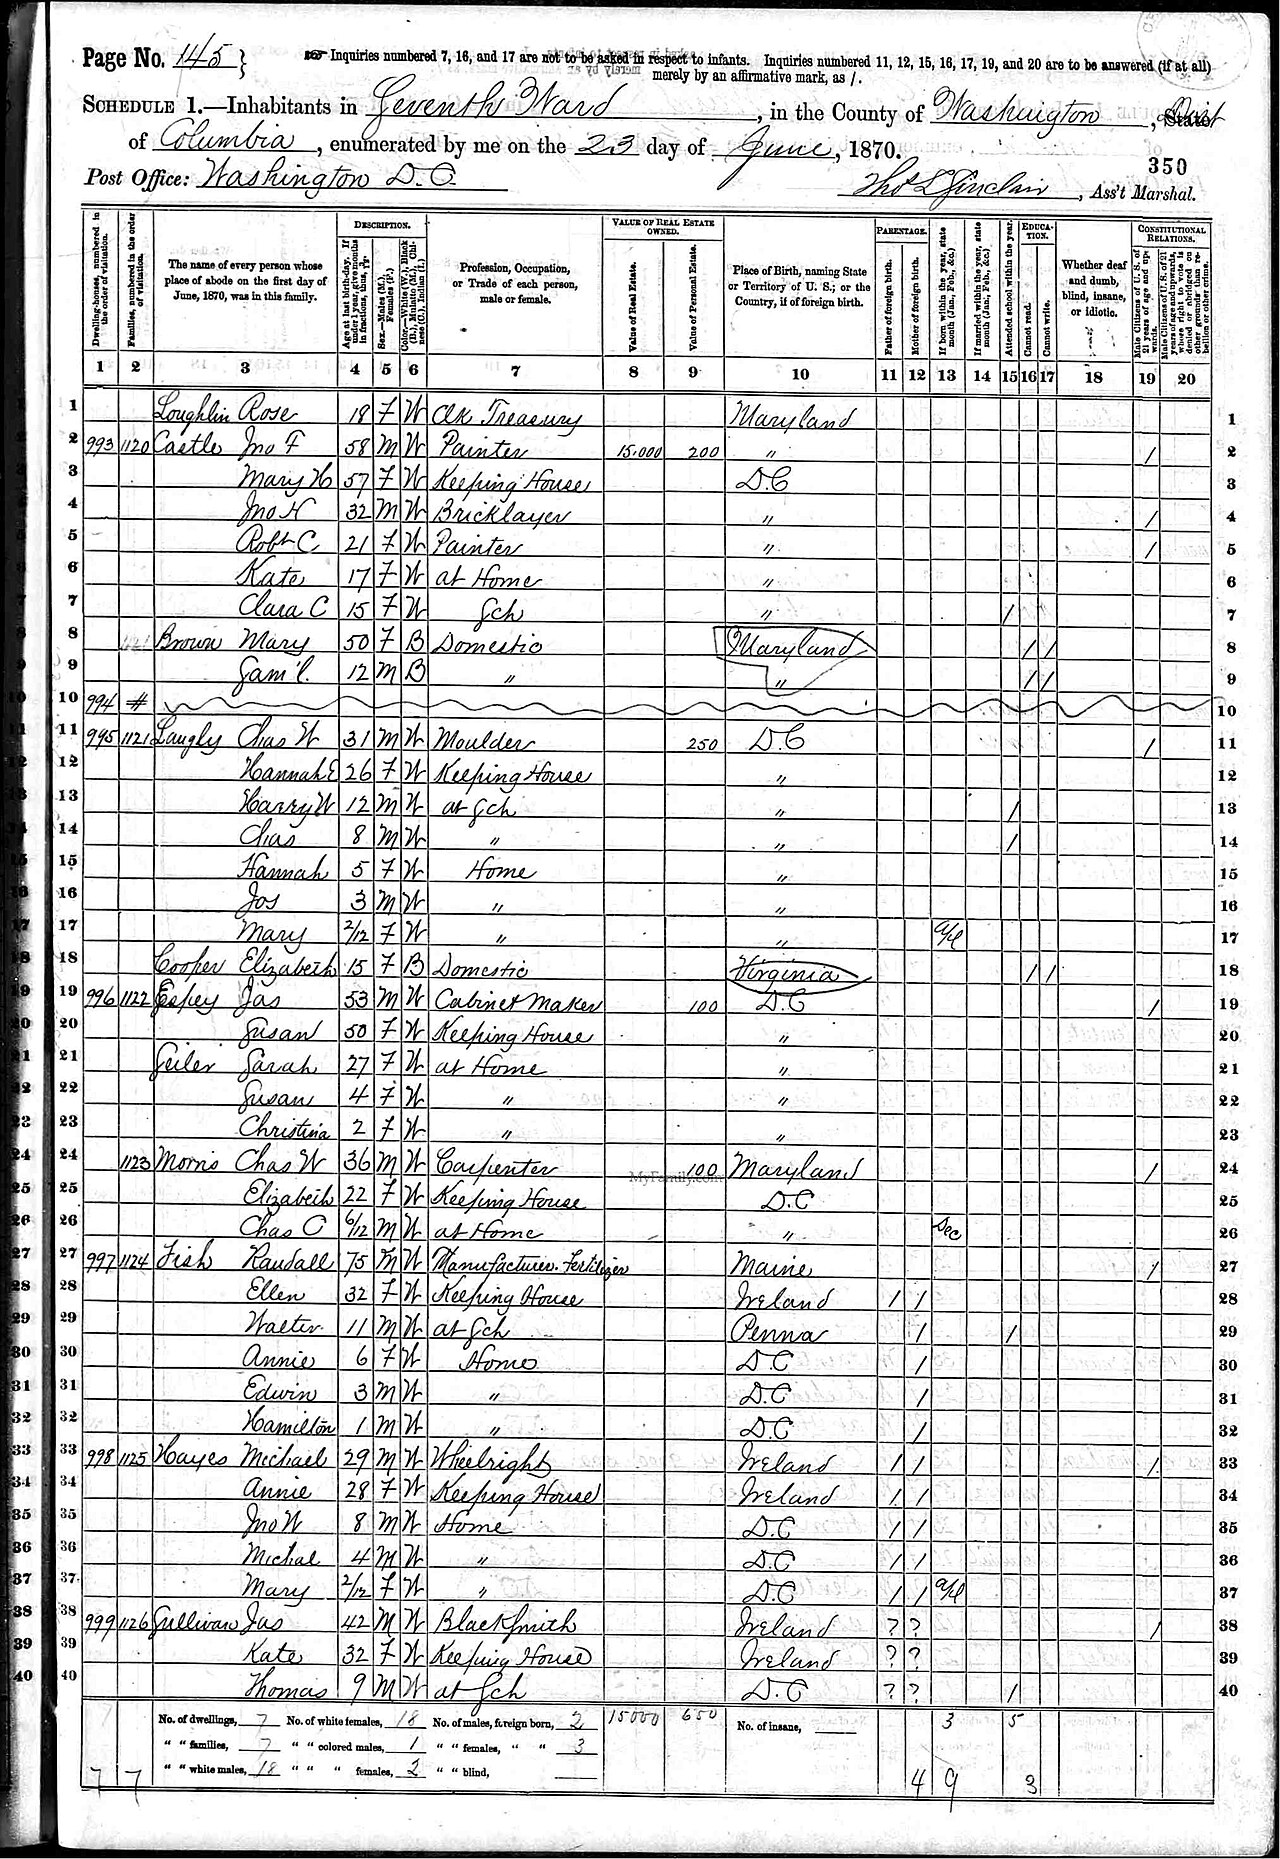 Page No. 145 } Inquiries numbered 7, 16, and 17 are not to be asked in respect to infants. Inquiries numbered 11, 12, 15, 16, 17, 19, and 20 are to be answered (if at all)
merely by an affirmative mark, as /.
SCHEDULE 1.—Inhabitants in Seventh Ward, in the County of Washington, State Dist
of Columbia, enumerated by me on the 23 day of June, 1870.
350
Post Office: Washington D.C. Thos L Sinclair, Ass't Marshal.
Dwelling-houses, numbered in the order of visitation.
Families, numbered in the order of visitation.
The name of every person whose place of abode on the first day of June, 1870, was in this family.
DESCRIPTION.
Age at last birth-day. If under 1 year, give months in fractions, thus, 3/12
Sex.—Males (M.), Females (F.)
Color.—White (W.), Black (B.), Mulatto (M.), Chinese (C.), Indian (I.)
Profession, Occupation, or Trade of each person, male or female.
VALUE OF REAL ESTATE OWNED.
Value of Real Estate.
Value of Personal Estate.
Place of Birth, naming State or Territory of U. S.; or the Country, if of foreign birth.
PARENTAGE.
Father of foreign birth.
Mother of foreign birth.
If born within the year, state month (Jan., Feb., &c.)
If married within the year, state month (Jan., Feb., &c.)
Attended school within the year.
EDUCATION.
Cannot read.
Cannot write.
Whether deaf and dumb, blind, insane, or idiotic.
CONSTITUTIONAL RELATIONS.
Male Citizens of U. S. of 21 years of age and upwards.
Male Citizens of U. S. of 21 years of age and upwards, whose right to vote is denied or abridged on other grounds than rebellion or other crime.
1 2 3 4 5 6 7 8 9 10 11 12 13 14 15 16 17 18 19 20
1 Loughlin Rose 18 F W Clk Treasury Maryland 1
2 993 1120 Castle Jno F 58 M W Painter 15.000 200 " / 2
3 Mary H 57 F W Keeping House D.C 3
4 Jno H 32 M W Bricklayer " / 4
5 Robt C 21 F W Painter " / 5
6 Kate 17 F W at Home " 6
7 Clara C 15 F W Sch " / 7
8 Brown Mary 50 F B Domestic Maryland / / 8
9 Sam'l. 12 M B " " / / 9
10 994 # 10
11 995 1121 Langly Chas W 31 M W Moulder 250 D.C / 11
12 Hannah E 26 F W Keeping House " 12
13 Harry W 12 M W at Sch " / 13
14 Chas 8 M W " " / 14
15 Hannah 5 F W Home " 15
16 Jos 3 M W " " 16
17 Mary 2/12 F W " " Apl 17
18 Cooper Elizabeth 15 F B Domestic Virginia / / 18
19 996 1122 Espey Jas 53 M W Cabinet Maker 100 D.C / 19
20 Susan 50 F W Keeping House " 20
21 Seiler Sarah 27 F W at Home " 21
22 Susan 4 F W " " 22
23 Christina 2 F W " " 23
24 1123 Morris Chas W 36 M W Carpenter 100 Maryland / 24
MyFamily.com
25 Elizabeth 22 F W Keeping House D.C 25
26 Chas C 6/12 M W at Home " Dec 26
27 997 1124 Fish Randall 75 M W Manufacturer Fertilizer Maine / 27
28 Ellen 32 F W Keeping House Ireland / / 28
29 Walter 11 M W at Sch Penna / / 29
30 Annie 6 F W Home D.C / 30
31 Edwin 3 M W " D.C / 31
32 Hamilton 1 M W " D.C / 32
33 998 1125 Hayes Michael 29 M W Wheelright Ireland / / / 33
34 Annie 28 F W Keeping House Ireland / / 34
35 Jno W 8 M W Home D.C / / 35
36 Michal 4 M W " D.C / / 36
37 Mary 2/12 F W " D.C / / Apl 37
38 999 1126 Sullivan Jas 42 M W BlackSmith Ireland ? ? / 38
39 Kate 32 F W Keeping House Ireland ? ? 39
40 Thomas 9 M W at Sch D.C ? ? / 40
No. of dwellings, 7 No. of white females, 18 No. of males, foreign born, 2 15000 650 No. of insane, 3 5
" " families, 7 " " colored males, 1 " " females, " " 3
" " white males, 18 " " " females, 2 " " blind,
7 7 4 9 3